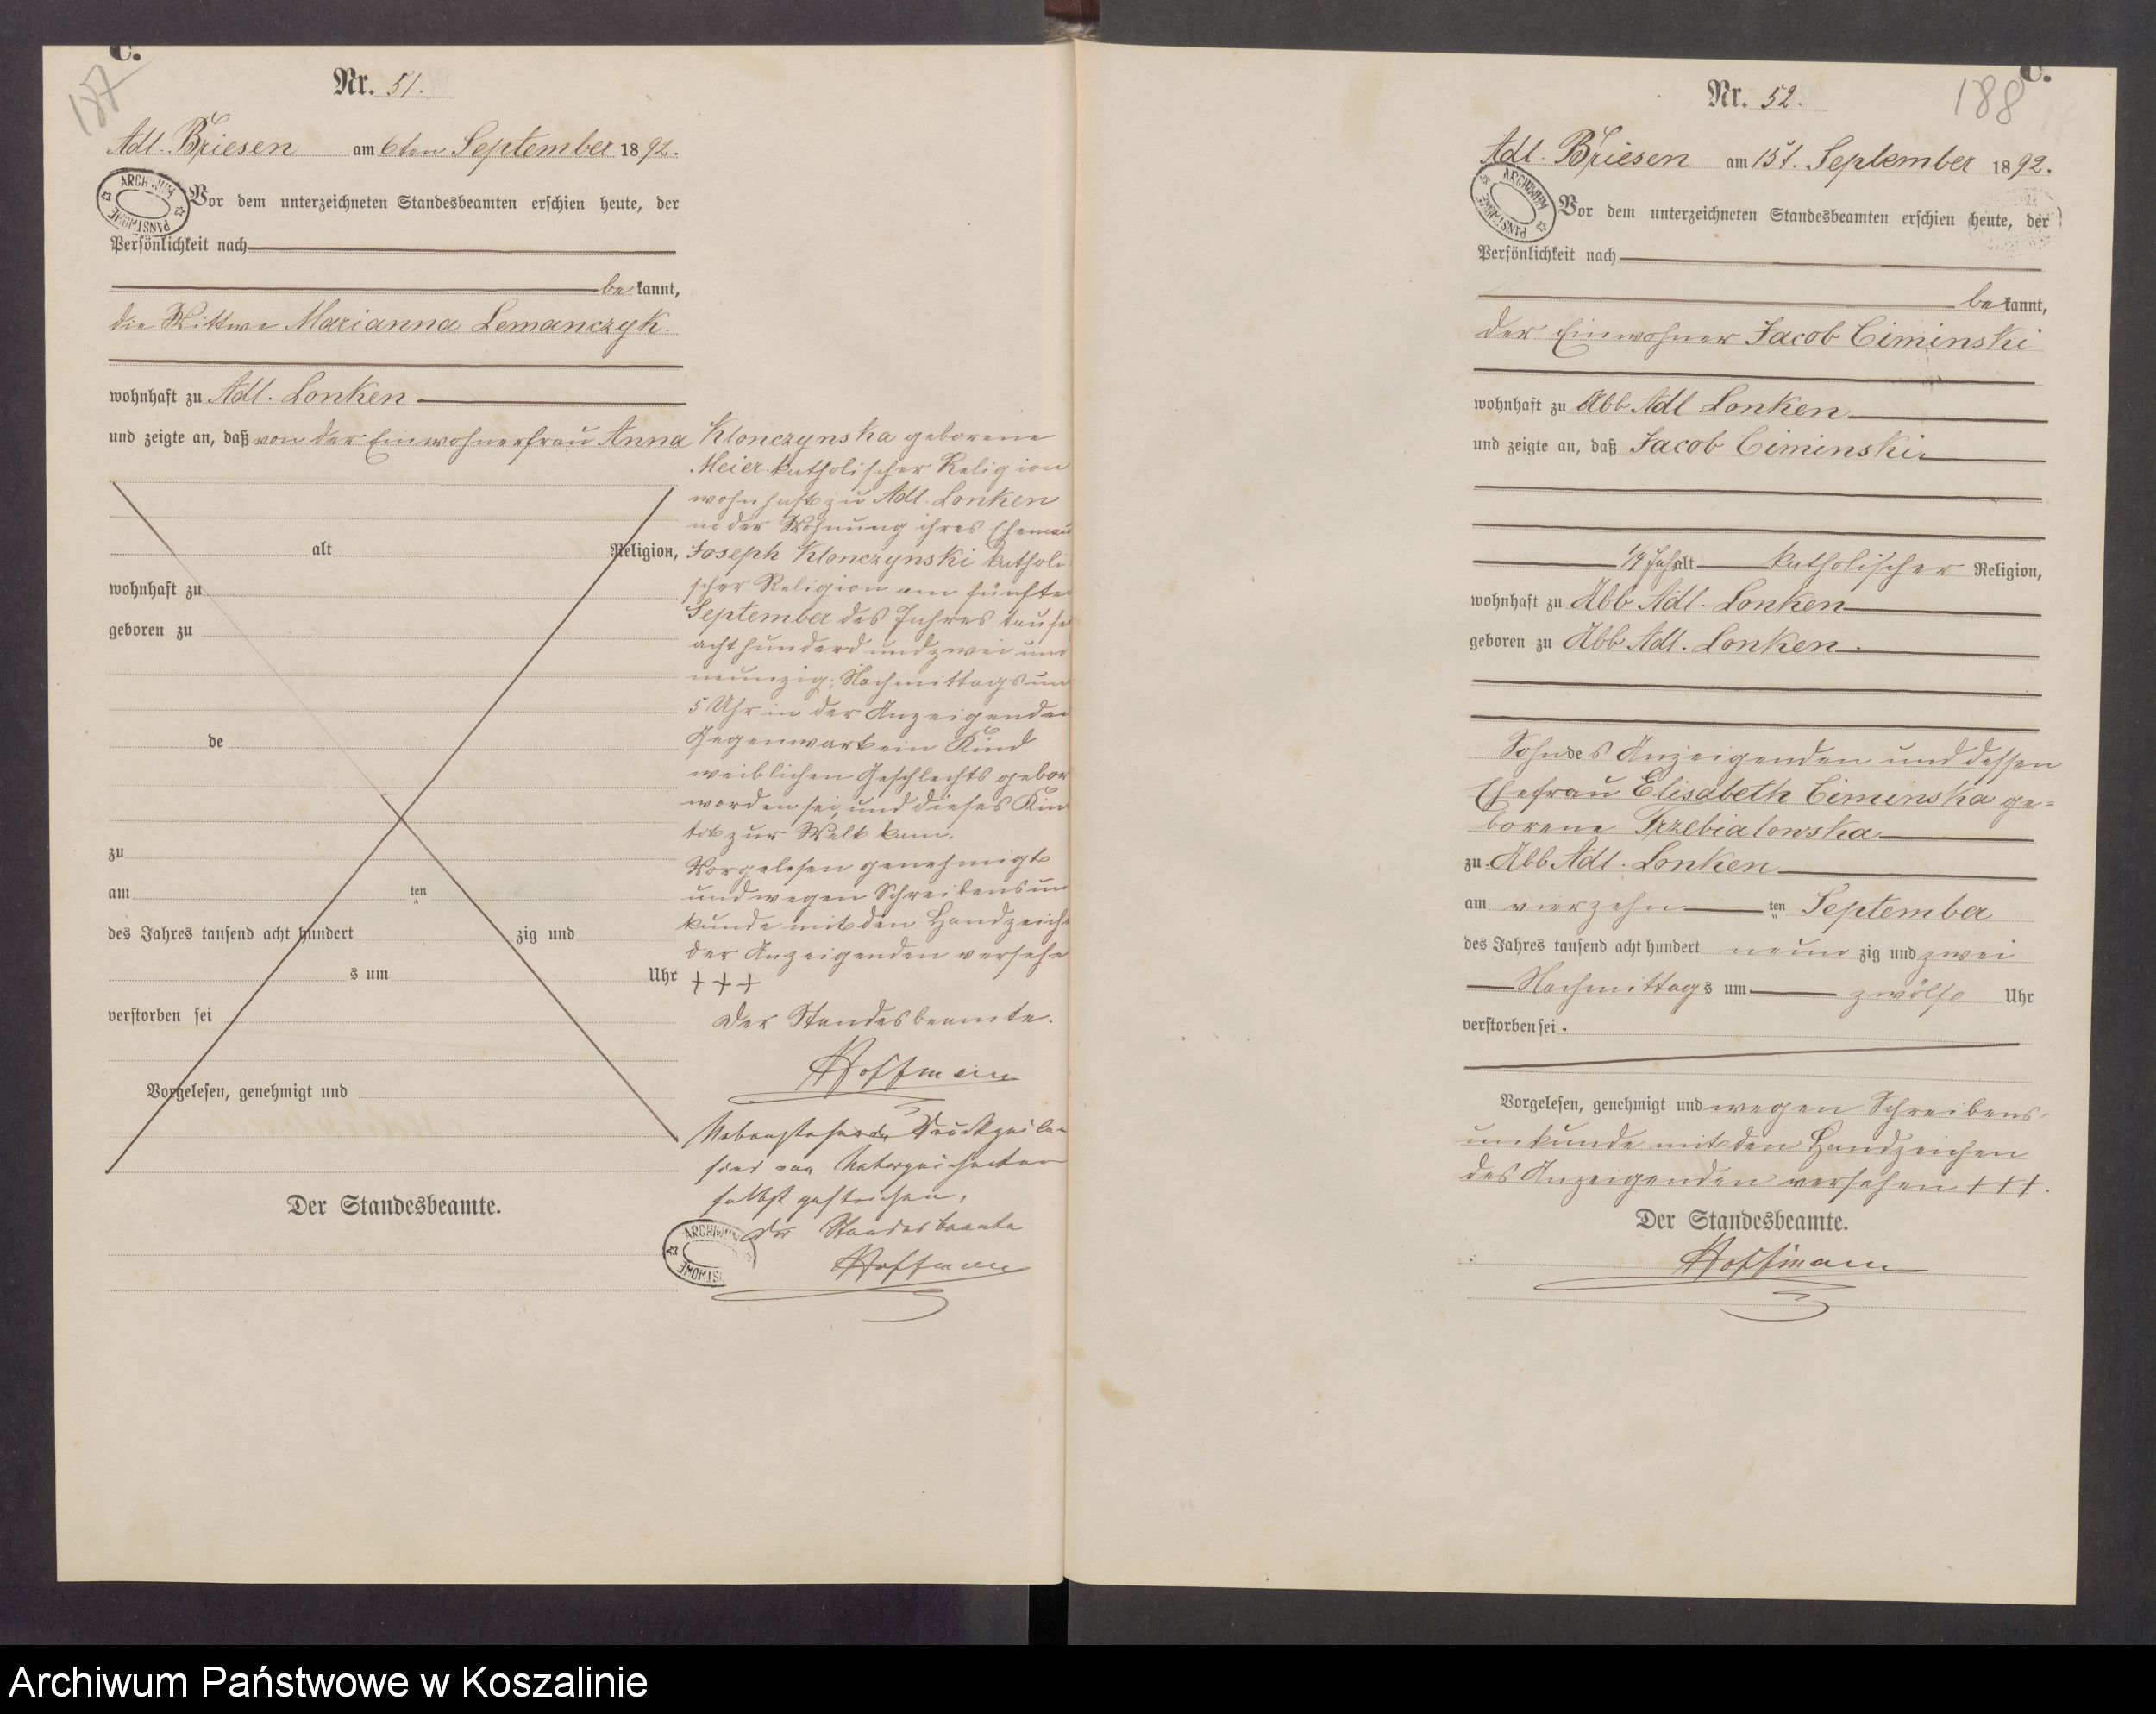 C.
187
Nr. 51.
Adl. Briesen am 6ten September 1892.
Vor dem unterzeichneten Standesbeamten erschien heute, der
Persönlichkeit nach
bekannt,
die Wittwe Marianna Lemanczyk.
wohnhaft zu Adl. Lonken
und zeigte an, daß von der Einwohnerfrau Anna
alt Religion,
wohnhaft zu
geboren zu
de
zu
am ten
des Jahres tausend acht hundert zig und
s um Uhr
verstorben sei
Vorgelesen, genehmigt und
Der Standesbeamte.
Klonczynska geborene
Meier katholischer Religion
wohnhaft zu Adl. Lonken
in der Wohnung ihres Eheman
Joseph Klonczynski katholi
scher Religion am fünfte
September des Jahres tause
acht hunderd und zwei und
neunzig, Nachmittags um
5 Uhr in der Anzeigenden
Gegenwart ein Kind
weiblichen Geschlechts gebor
worden sei, und dieses Kin
tot zur Welt kam.
Vorgelesen genehmigt
und wegen Schreibensun
kunde mit den Handzeich
der Anzeigenden versehe
+++
Der Standesbeamte.
Hoffmann
Nebenstehende Druckzeilen
sind von Unterzeichneten
selbst gestrichen.
Der Standesbeamte
Hoffmann
ARCHIWUM
PAŃSTWOWE
C.
188
Nr. 52.
Adl. Briesen am 15t. September 1892.
Vor dem unterzeichneten Standesbeamten erschien heute, der
Persönlichkeit nach
bekannt,
der Einwohner Jacob Ciminski
wohnhaft zu Abb Adl Lonken
und zeigte an, daß Jacob Ciminski
1/4 Jahr alt katholischer Religion,
wohnhaft zu Abb Adl. Lonken
geboren zu Abb Adl. Lonken
Sohn des Anzeigenden und dessen
Ehefrau Elisabeth Ciminska ge=
borene Trzebiatowska
zu Abb Adl. Lonken
am vierzehn ten September
des Jahres tausend acht hundert neun zig und zwei
Nachmittags um zwölf Uhr
verstorben sei.
Vorgelesen, genehmigt und wegen Schreibens-
unkunde mit den Handzeichen
des Anzeigenden versehen +++.
Der Standesbeamte.
Hoffmann
ARCHIWUM
PAŃSTWOWE
Archiwum Państwowe w Koszalinie